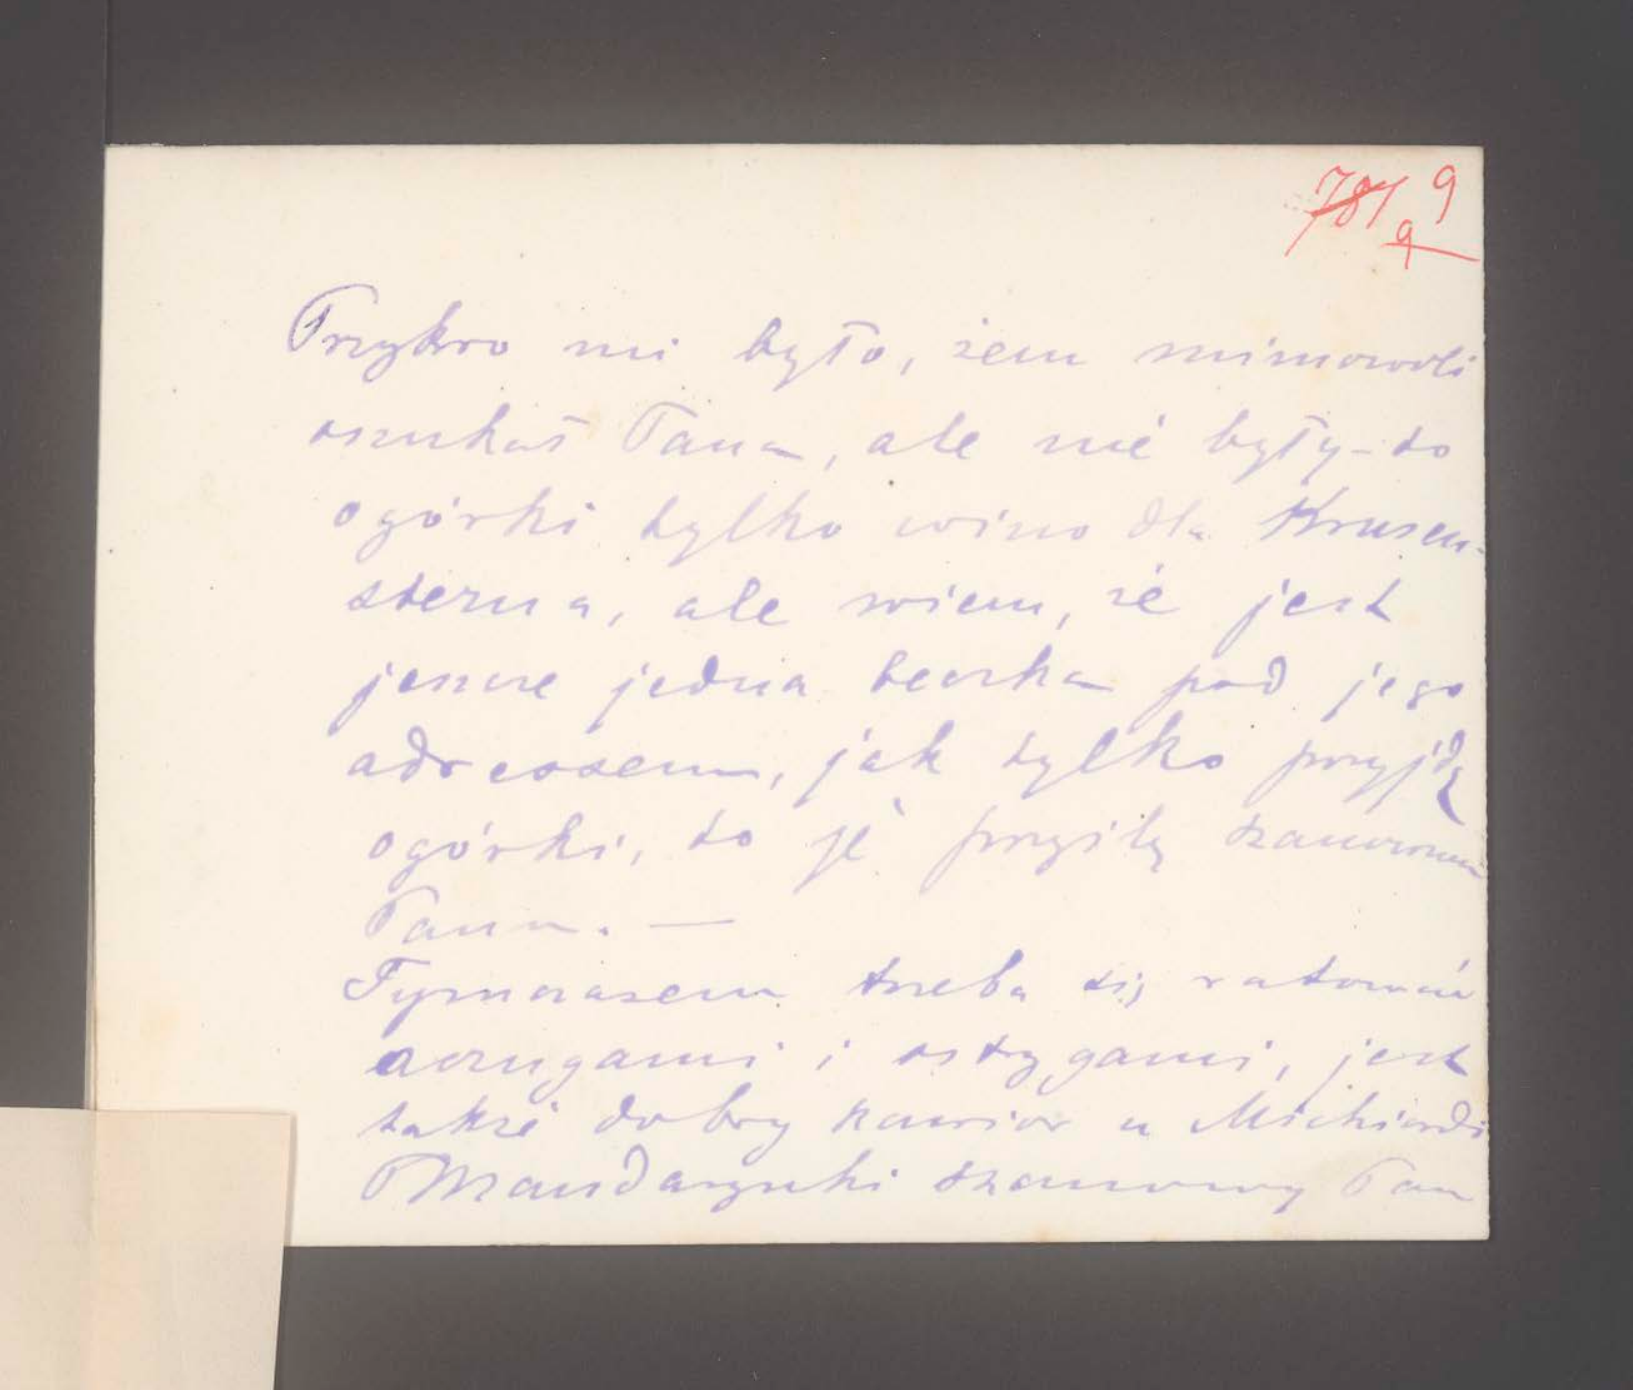 9
Przykro mi było, żem mimowoli
oszukał Pana, ale nie były-to
ogórki tylko wino dla Krusen-
sterna, ale wiem, że jest
jeszcze jedna beczka pod jego
adressem, jak tylko przyjdą
ogórki, to je przyślę szanownemu
Panu. —
Tymczasem trzeba się ratować
i ostrygami, jest
także dobry kawior u
Mandarynki szanowny Pan